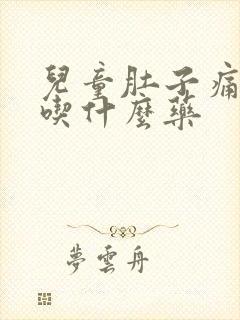 兒童肚子痛
喫什麼藥
夢雲舟